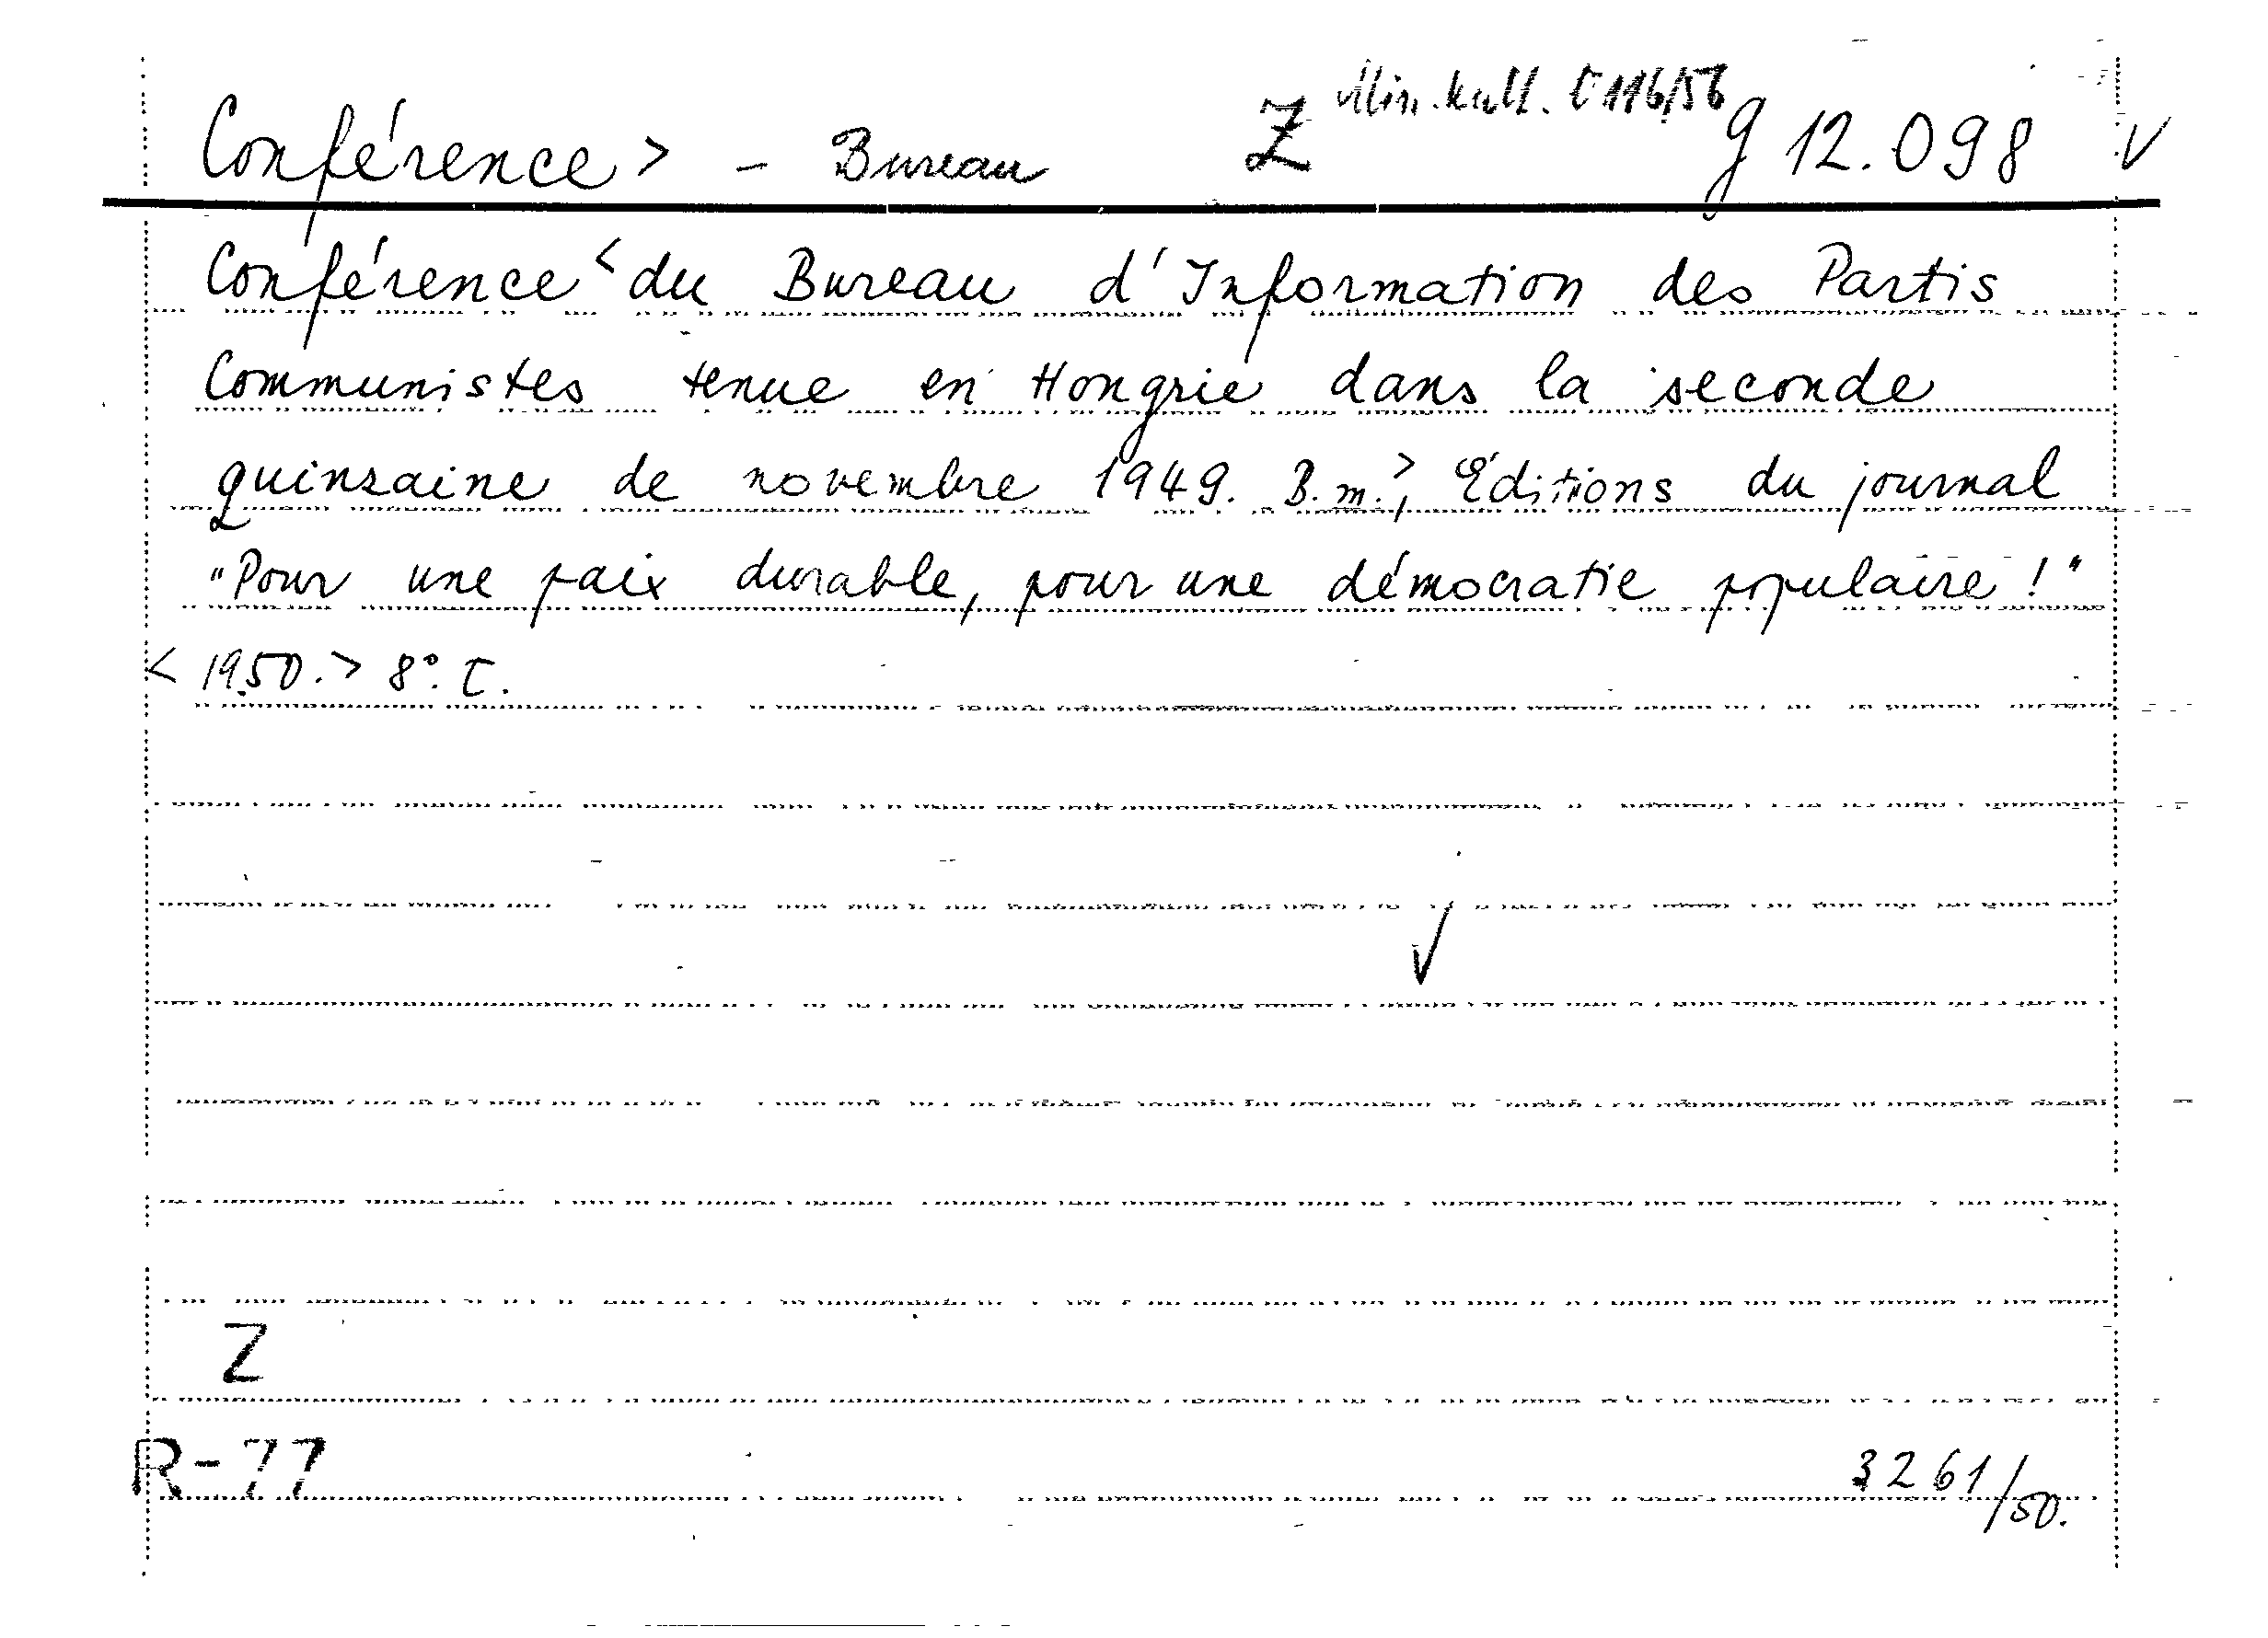 Min. kult. C 116/56
Conférence > - Bureau Z g 12.098 V
Conférence < du Bureau d'Information des Partis
Communistes tenue en Hongrie dans la seconde
quinzaine de novembre 1949. B. m.>, Éditions du journal
"Pour une paix durable, pour une démocratie populaire!"
< 1950. > 8°. C.
Z
R-77
3261/50.